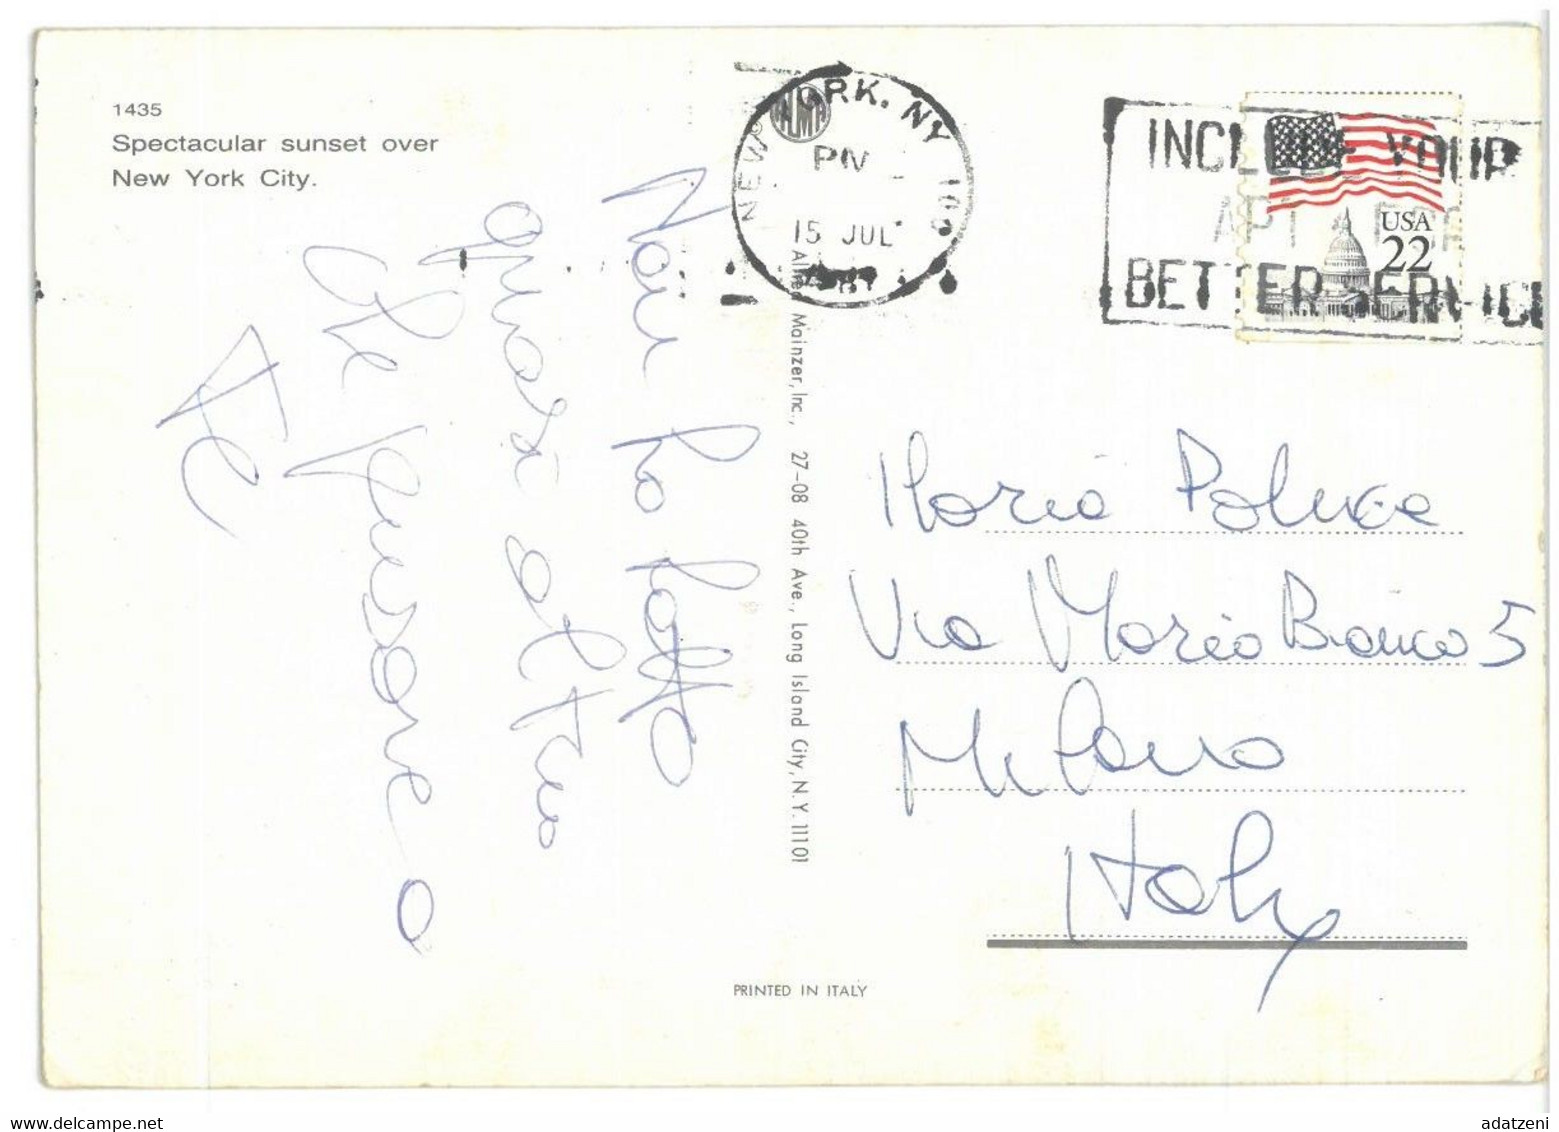 1435
Spectacular sunset over
New York City.
NEW YORK, NY 100
PM
15 JUL
INCLUDE YOUR
APT
BETTER SERVICE
USA
22
Non ho fatto
quasi altro
che pensare a
te
Alfred Mainzer, Inc., 27-08 40th Ave., Long Island City, N.Y. 11101
Ilaria
Via Mario Bianco 5
Milano
Italy
PRINTED IN ITALY
adatzeni